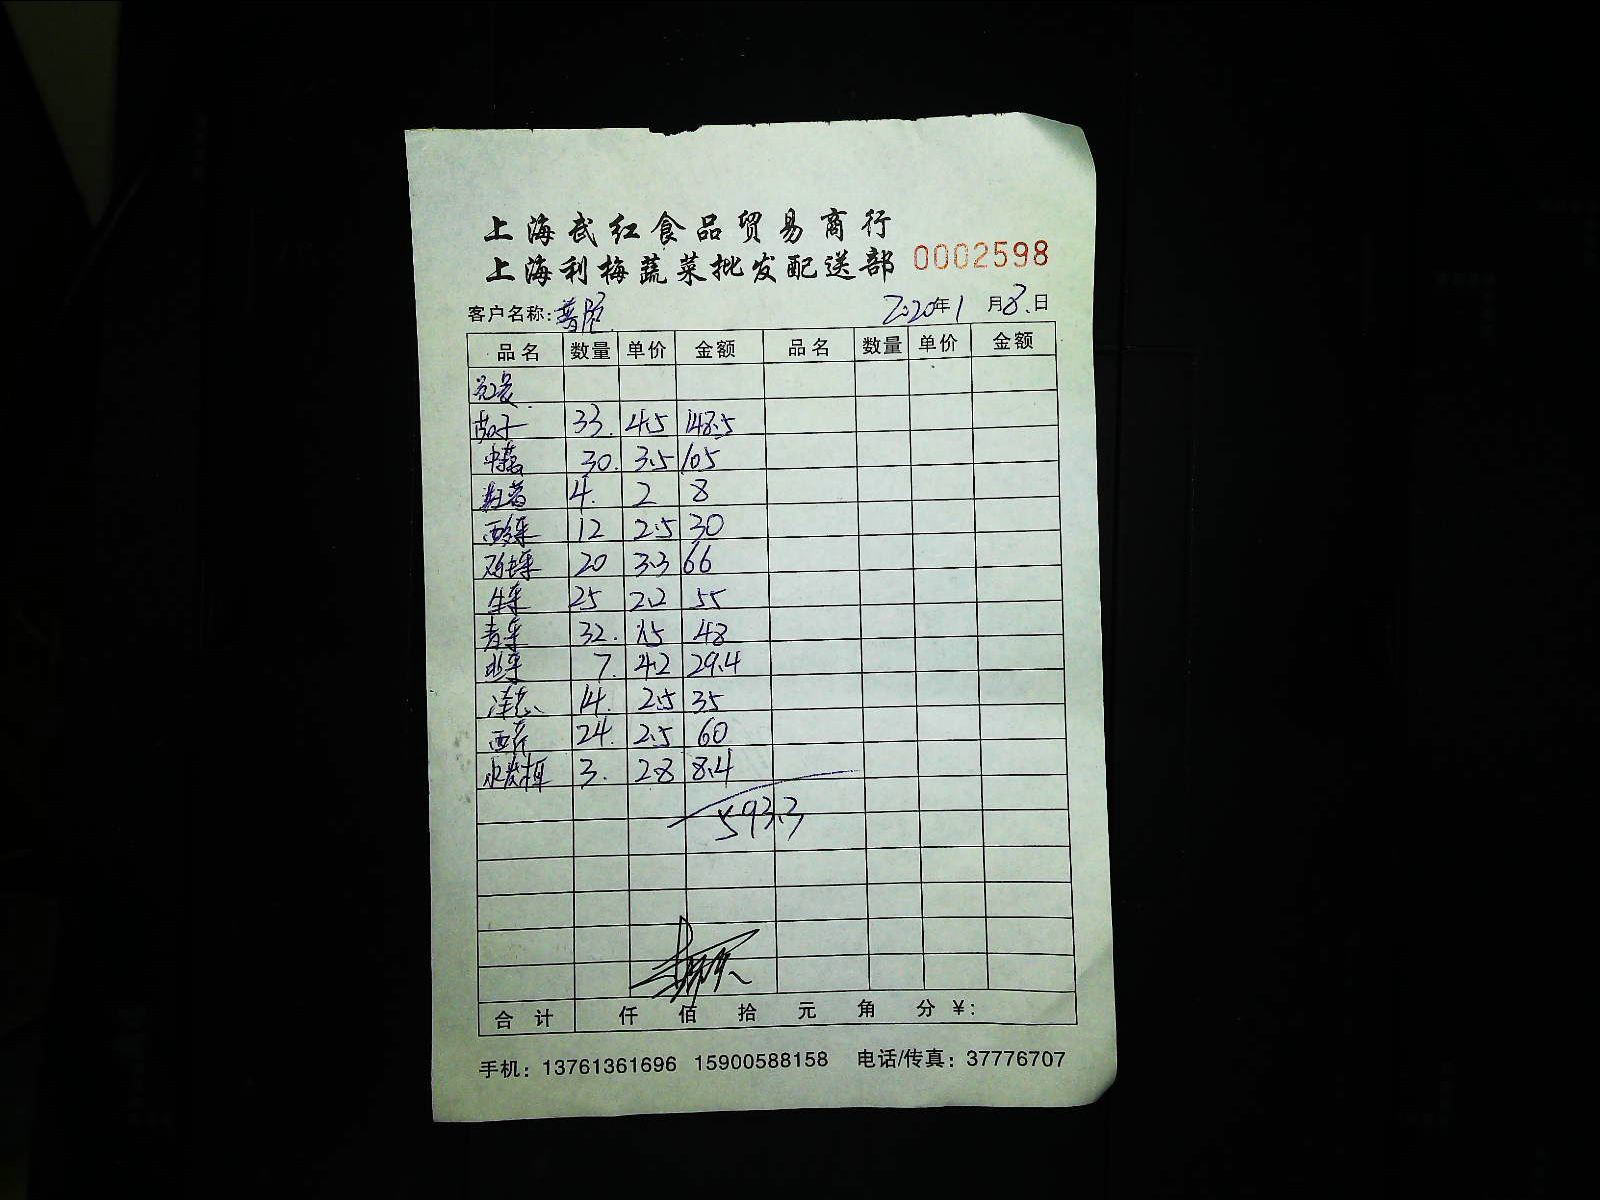 上海武红食品贸易商行
上海利梅蔬菜批发配送部 0002598
客户名称: 2020年1月8日
品名 数量 单价 金额 品名 数量 单价 金额
茄子 33. 4.5 148.5
30. 3.5 105
4. 2 8
12 2.5 30
20 3.3 66
生菜 25 2.2 55
青菜 32. 1.5 48
韭菜 7. 4.2 29.4
洋葱 14. 2.5 35
西芹 24. 2.5 60
3. 2.8 8.4
593.3
合计 仟 佰 拾 元 角 分 ¥:
手机: 13761361696 15900588158 电话/传真: 37776707